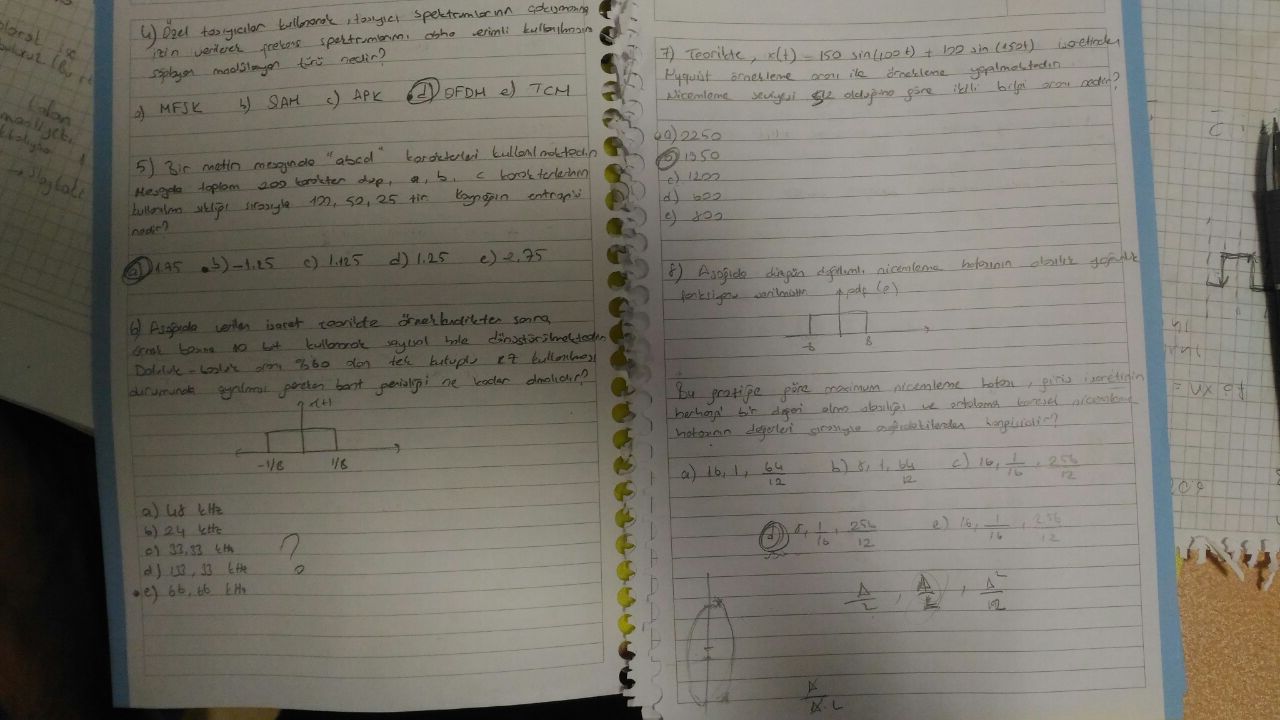 4) Özel taşıyıcılar kullanarak, taşıyıcı spektrumlarının çakışmasına
izin verilerek frekans spektrumlarının daha verimli kullanılmasını
sağlayan modülasyon türü nedir?
a) MFSK b) QAM c) APK d) OFDM e) TCM
5) Bir metin mesajında "abcd" karakterleri kullanılmaktadır
Mesajda toplam 200 karakter olup, a, b, c karakterlerinin
kullanım sıklığı sırasıyla 100, 50, 25 tir Kaynağın entropisi
nedir?
a) 1.75 b) -1,25 c) 1.125 d) 1.25 e) 2,75
6) Aşağıda verilen işaret teorikte örneklendikten sonra
örnek başına 10 bit kullanarak sayısal hale dönüştürülmektedir
Doluluk-boşluk oranı %60 olan tek kutuplu RZ kullanılması
durumunda ayrılması gereken bant genişliği ne kadar olmalıdır?
x(t)
-1/8 1/8
a) 48 kHz
b) 24 kHz
c) 33,33 kHz
d) 133,33 kHz
e) 66,66 kHz
?
7) Teorikte, x(t) = 150 sin(400t) + 100 sin(150t) işaretinden
Nyquist örnekleme oranı ile örnekleme yapılmaktadır
Nicemleme seviyesi 512 olduğuna göre ikili bilgi oranı nedir?
a) 2250
b) 1350
c) 1200
d) 600
e) 800
8) Aşağıda düzgün dağılımlı nicemleme hatasının olasılık yoğunluk
fonksiyonu verilmiştir
pdf(e)
-8 8
Bu grafiğe göre maximum nicemleme hatası, giriş işaretinin
herhangi bir değeri alma olasılığı ve ortalama karesel nicemleme
hatasının değerleri sırasıyla aşağıdakilerden hangisidir?
a) 16, 1, 64/12 b) 8, 1, 64/12 c) 16, 1/16, 256/12
d) 8, 1/16, 256/12 e) 16, 1/16, 256/12
Δ/2, Δ²/12